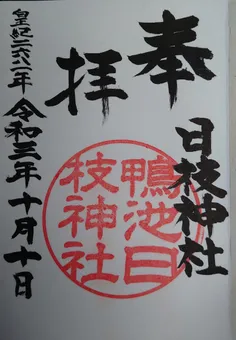 奉
拝
日枝神社
鴨池日
枝神社
皇紀二六八一年令和三年十月十日